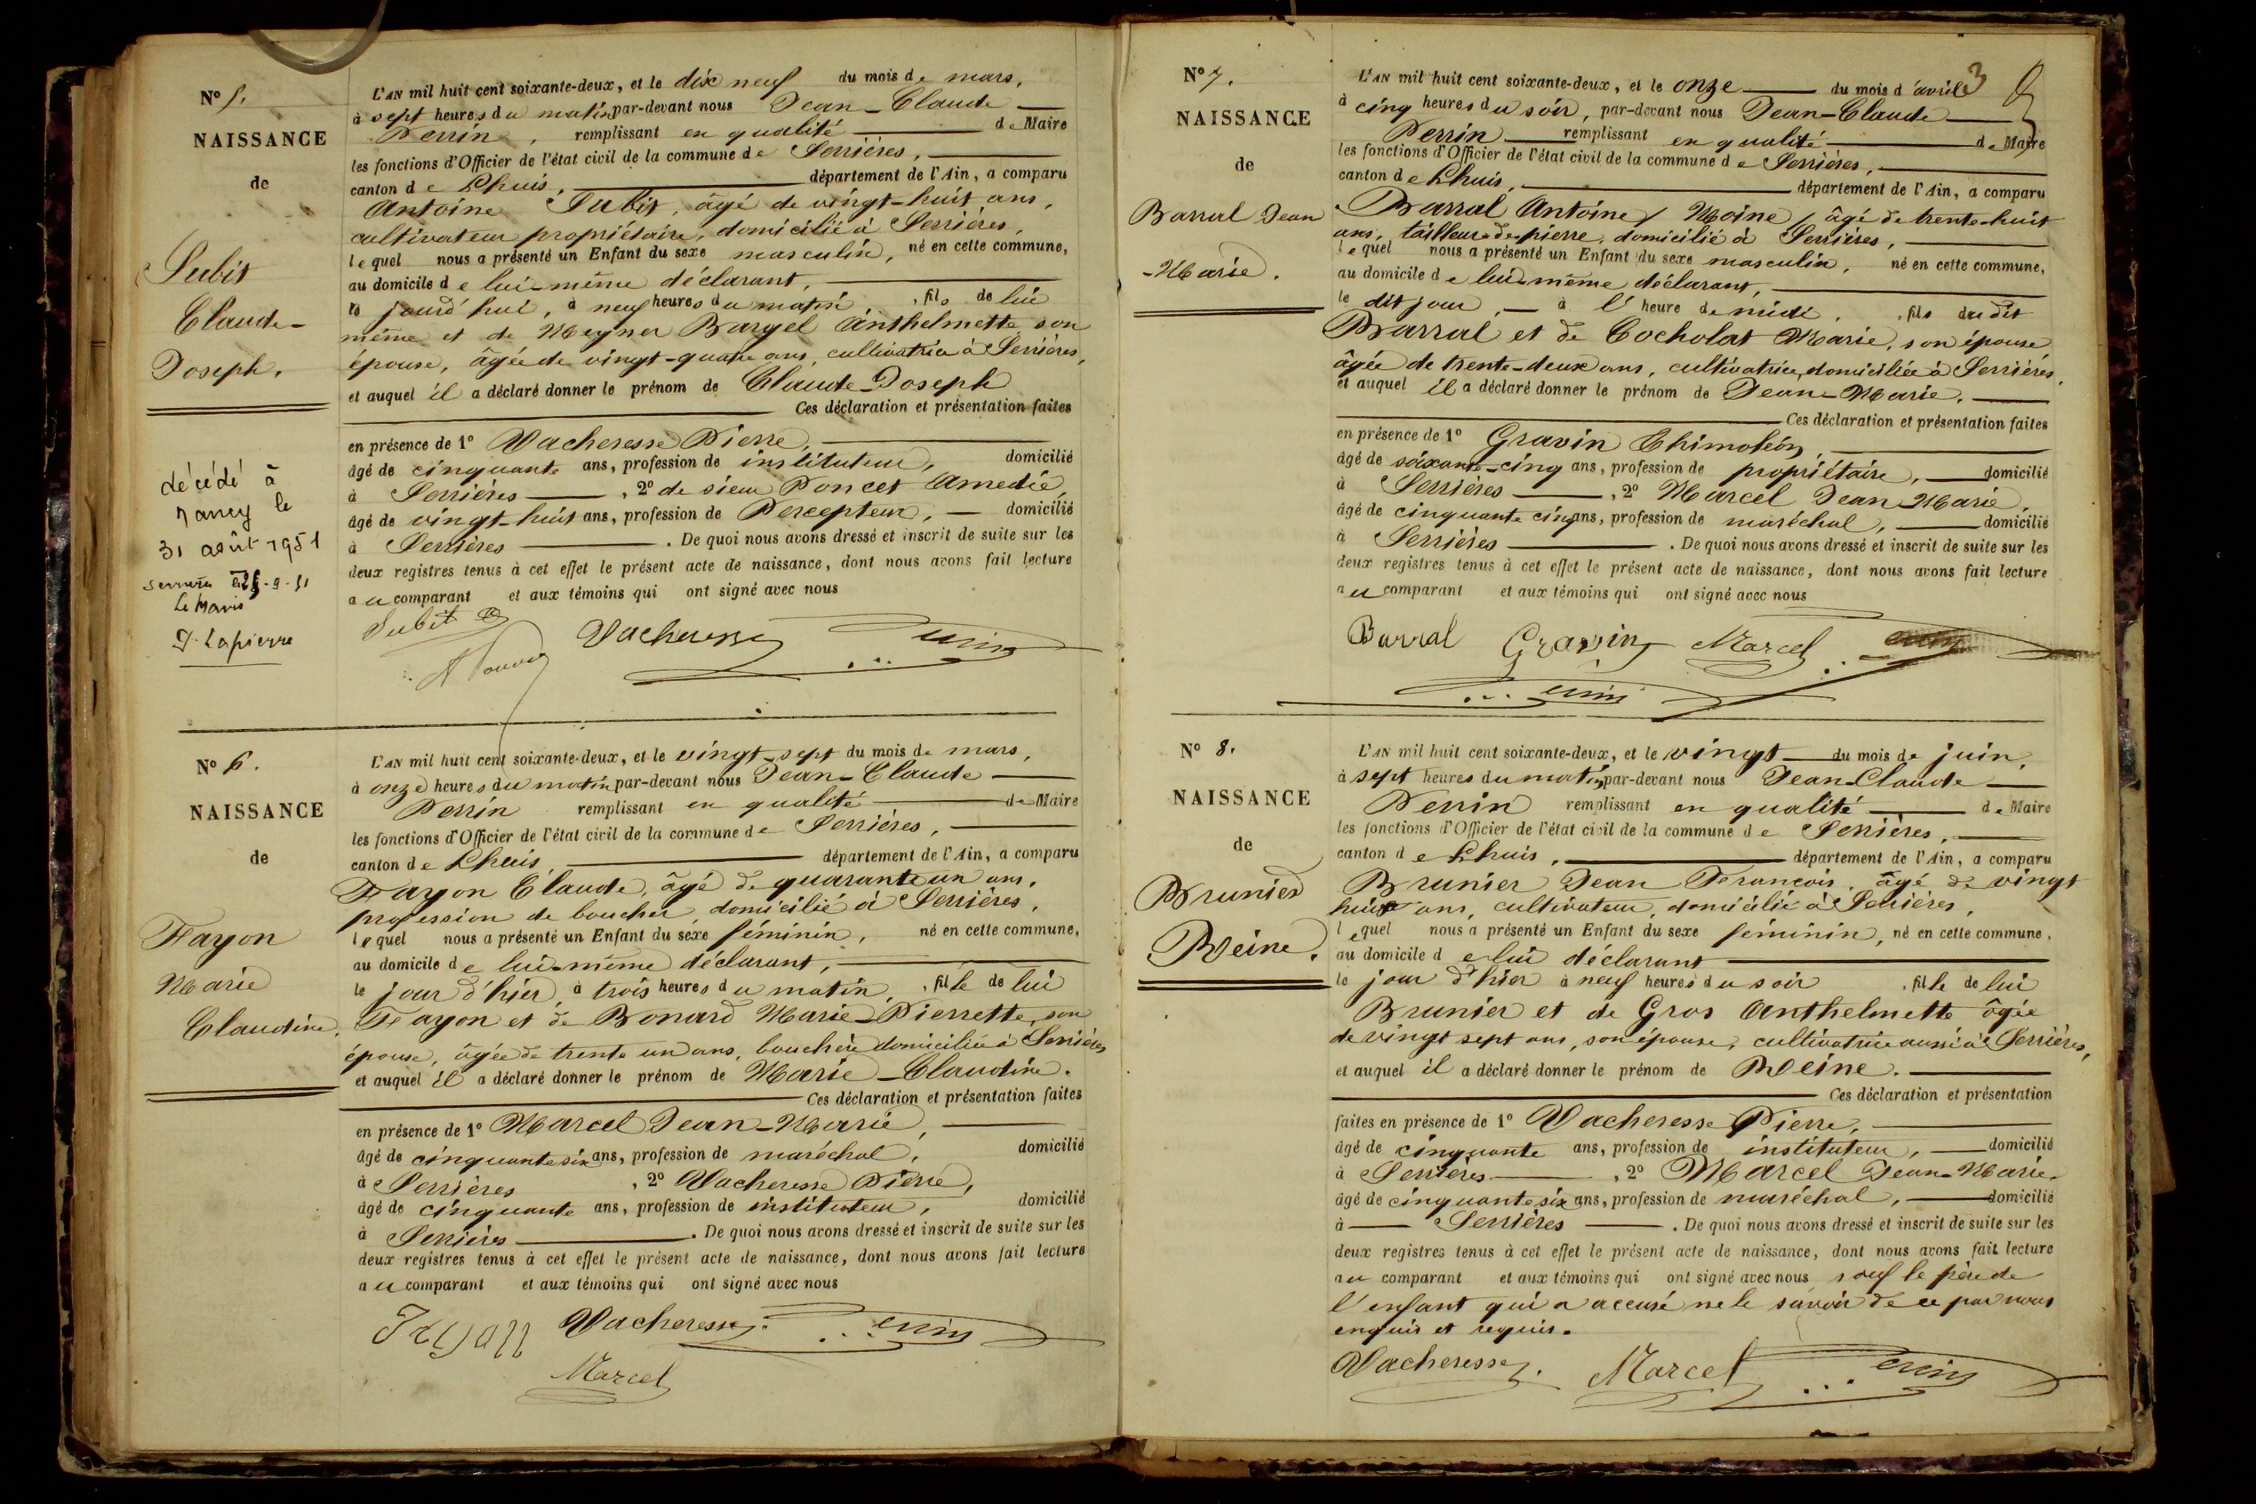 N° 5.
NAISSANCE
de
Subit
Claude-
Joseph.
décédé à
Nancy le
31 août 1951
Le Maire
J. Lapierre
L'AN mil huit cent soixante-deux, et le dix neuf du mois de mars,
à sept heures du matin, par-devant nous Jean-Claude
Perrin, remplissant en qualité de Maire
les fonctions d'Officier de l'état civil de la commune de Serrières,
canton de Lhuis, département de l'Ain, a comparu
Antoine Subit, âgé de vingt-huit ans,
cultivateur propriétaire, domicilié à Serrières,
lequel nous a présenté un Enfant du sexe masculin, né en cette commune,
au domicile de lui-même déclarant,
jourd'hui, à neuf heures du matin, fils de lui
même et de Anthelmette son
épouse, âgée de vingt-quatre ans, cultivatrice à Serrières,
et auquel il a déclaré donner le prénom de Claude-Joseph
Ces déclaration et présentation faites
en présence de 1° Vacheresse Pierre,
âgé de cinquante ans, profession de instituteur, domicilié
à Serrières, 2° de sieur Poncet Amedée,
âgé de vingt-huit ans, profession de Percepteur, domicilié
à Serrières. De quoi nous avons dressé et inscrit de suite sur les
deux registres tenus à cet effet le présent acte de naissance, dont nous avons fait lecture
au comparant et aux témoins qui ont signé avec nous
Subit Vacheresse Perrin
N° 6.
NAISSANCE
de
Fayon
Marie
Claudine.
L'AN mil huit cent soixante-deux, et le vingt-sept du mois de mars,
à onze heures du matin par-devant nous Jean-Claude
Perrin remplissant en qualité de Maire
les fonctions d'Officier de l'état civil de la commune de Serrières,
canton de Lhuis, département de l'Ain, a comparu
Fayon Claude, âgé de quarante un ans,
profession de boucher, domicilié à Serrières,
lequel nous a présenté un Enfant du sexe féminin, né en cette commune,
au domicile de lui-même déclarant,
le jour d'hier, à trois heures du matin, fille de lui
Fayon et de Bonard Marie-Pierrette, son
épouse, âgée de trente un ans, bouchère domiciliée à Serrières
et auquel il a déclaré donner le prénom de Marie-Claudine.
Ces déclaration et présentation faites
en présence de 1° Marcel Jean-Marie,
âgé de cinquante six ans, profession de maréchal, domicilié
à Serrières, 2° Vacheresse Pierre,
âgé de cinquante ans, profession de instituteur, domicilié
à Serrières. De quoi nous avons dressé et inscrit de suite sur les
deux registres tenus à cet effet le présent acte de naissance, dont nous avons fait lecture
au comparant et aux témoins qui ont signé avec nous
Fayon Vacheresse Perrin
Marcel
3
N° 7.
NAISSANCE
de
Barral Jean
-Marie.
L'AN mil huit cent soixante-deux, et le onze du mois d'avril
à cinq heures du soir, par-devant nous Jean-Claude
Perrin remplissant en qualité de Maire
les fonctions d'Officier de l'état civil de la commune de Serrières,
canton de Lhuis, département de l'Ain, a comparu
Barral Antoine / Moine / âgé de trente-huit
ans, tailleur de pierre, domicilié à Serrières,
lequel nous a présenté un Enfant du sexe masculin, né en cette commune,
au domicile de lui-même déclarant,
le dit jour, à l'heure de midi, fils du dit
Barral et de Cocholat Marie, son épouse
âgée de trente-deux ans, cultivatrice, domiciliée à Serrières,
et auquel il a déclaré donner le prénom de Jean-Marie.
Ces déclaration et présentation faites
en présence de 1° Gravin Thimoléon,
âgé de soixante-cinq ans, profession de propriétaire, domicilié
à Serrières, 2° Marcel Jean-Marie,
âgé de cinquante cinq ans, profession de maréchal, domicilié
à Serrières. De quoi nous avons dressé et inscrit de suite sur les
deux registres tenus à cet effet le présent acte de naissance, dont nous avons fait lecture
au comparant et aux témoins qui ont signé avec nous
Barral Gravin Marcel
Perrin
N° 8.
NAISSANCE
de
Brunier
Reine.
L'AN mil huit cent soixante-deux, et le vingt du mois de juin,
à sept heures du matin, par-devant nous Jean-Claude
Perrin remplissant en qualité de Maire
les fonctions d'Officier de l'état civil de la commune de Serrières,
canton de Lhuis, département de l'Ain, a comparu
Brunier Jean François, âgé de vingt
huit ans, cultivateur, domicilié à Serrières,
lequel nous a présenté un Enfant du sexe féminin, né en cette commune,
au domicile de lui déclarant
le jour d'hier à neuf heures du soir, fille de lui
Brunier et de Gros Anthelmette âgée
de vingt sept ans, son épouse, cultivatrice aussi à Serrières,
et auquel il a déclaré donner le prénom de Reine.
Ces déclaration et présentation
faites en présence de 1° Vacheresse Pierre,
âgé de cinquante ans, profession de instituteur, domicilié
à Serrières, 2° Marcel Jean-Marie,
âgé de cinquante six ans, profession de maréchal, domicilié
à Serrières. De quoi nous avons dressé et inscrit de suite sur les
deux registres tenus à cet effet le présent acte de naissance, dont nous avons fait lecture
au comparant et aux témoins qui ont signé avec nous sauf le père de
l'enfant qui a accusé ne le savoir de ce par nous
enquis et requis.
Vacheresse. Marcel Perrin